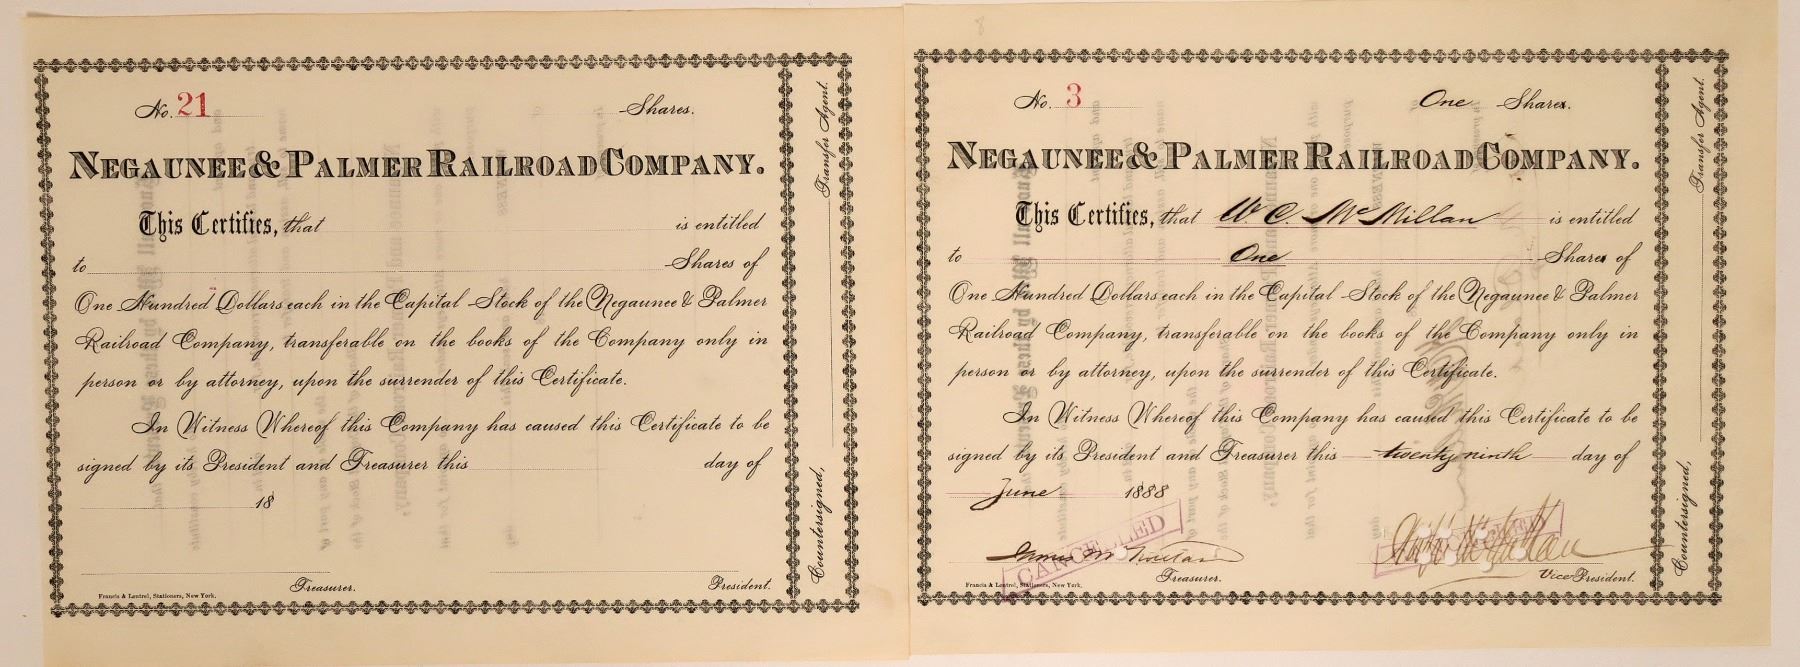 No. 21 Shares.
NEGAUNEE & PALMER RAILROAD COMPANY.
This Certifies, that is entitled
to Shares of
One Hundred Dollars each in the Capital Stock of the Negaunee & Palmer
Railroad Company, transferable on the books of the Company only in
person or by attorney, upon the surrender of this Certificate.
In Witness Whereof this Company has caused this Certificate to be
signed by its President and Treasurer this day of
18
Treasurer. President.
Francis & Loutrel, Stationers, New York.
Countersigned,
Transfer Agent.
8
No. 3 One Share.
NEGAUNEE & PALMER RAILROAD COMPANY.
This Certifies, that W. C. McMillan is entitled
to One Share of
One Hundred Dollars each in the Capital Stock of the Negaunee & Palmer
Railroad Company, transferable on the books of the Company only in
person or by attorney, upon the surrender of this Certificate.
In Witness Whereof this Company has caused this Certificate to be
signed by its President and Treasurer this twenty ninth day of
June 1888
CANCELLED
James McMillan
CANCELLED
McMillan
Treasurer. Vice President.
Francis & Loutrel, Stationers, New York.
Countersigned,
Transfer Agent.